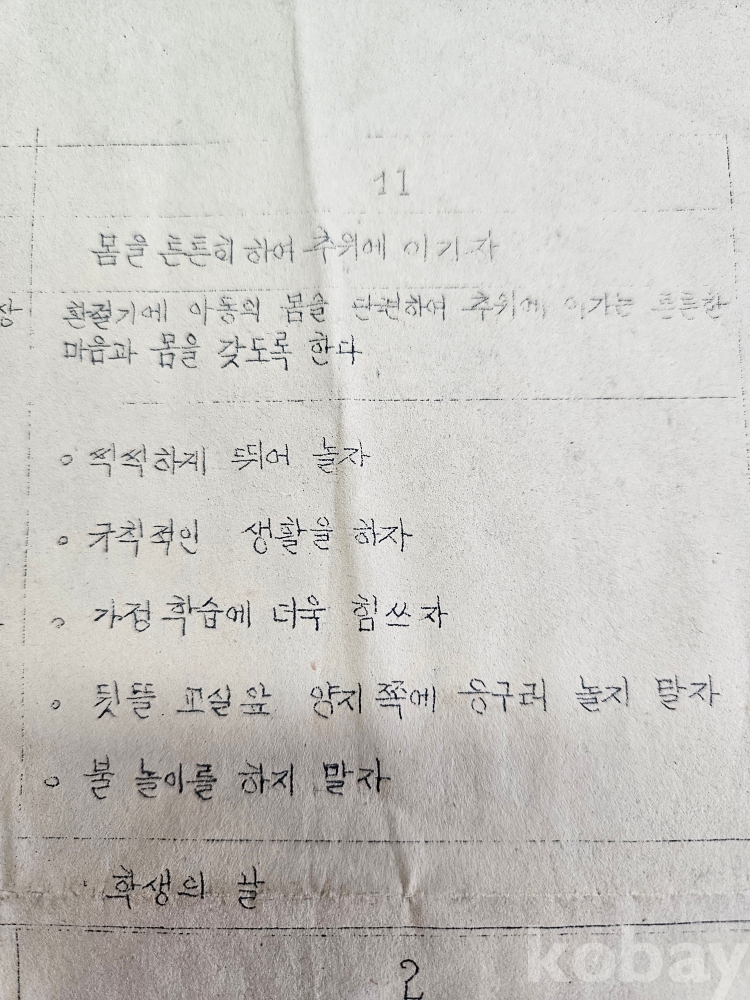 11
몸을 튼튼히 하여 추위에 이기자
환절기에 아동의 몸을 단련하여 추위에 이기는 튼튼한
마음과 몸을 갖도록 한다
○ 씩씩하게 뛰어 놀자
○ 규칙적인 생활을 하자
○ 가정 학습에 더욱 힘쓰자
○ 뒷뜰 교실 앞 양지 쪽에 웅구려 놀지 말자
○ 불 놀이를 하지 말자
학생의 날
2
kobay